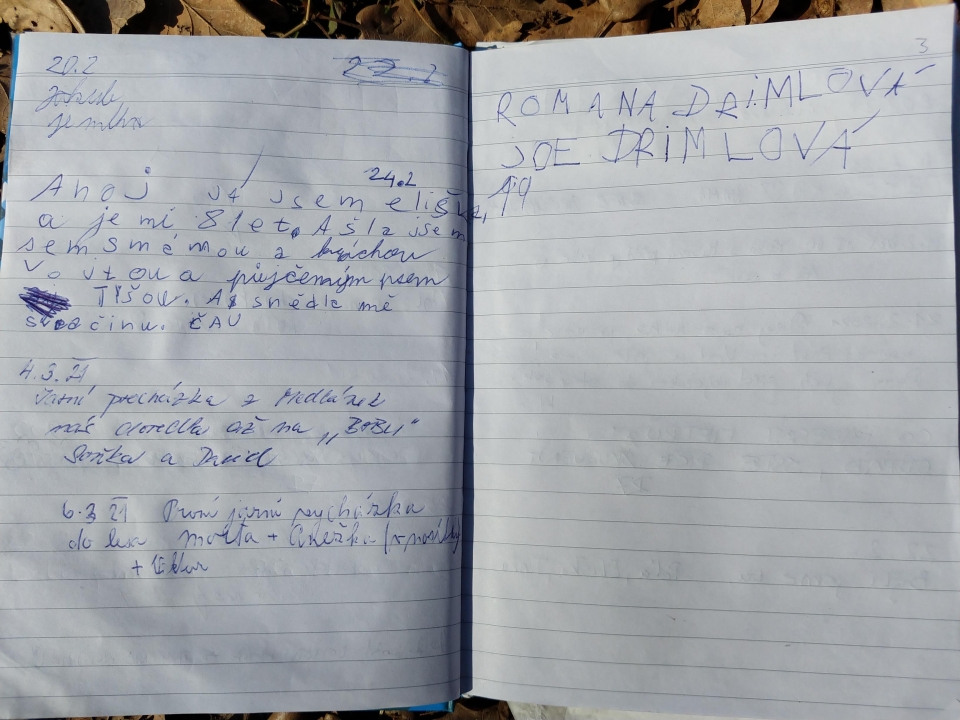 20.2
22.2
Jakub
je mlha
24.2
Ahoj já jsem eliška,
a je mi 8 let. A šla jsem
sem s mámou a bráchou
Vojtou a půjčeným psem
Tišou. A snědla mě
svačinu. ČAU
4.3.21
Jarní procházka z Medlánek
nás dovedla až na „BOBU"
a David
6.3 21 První jarní psycházka
do lesa + Anežka
+ Viktor
3
ROMANA DRIMLOVÁ
JOE DRIMLOVÁ